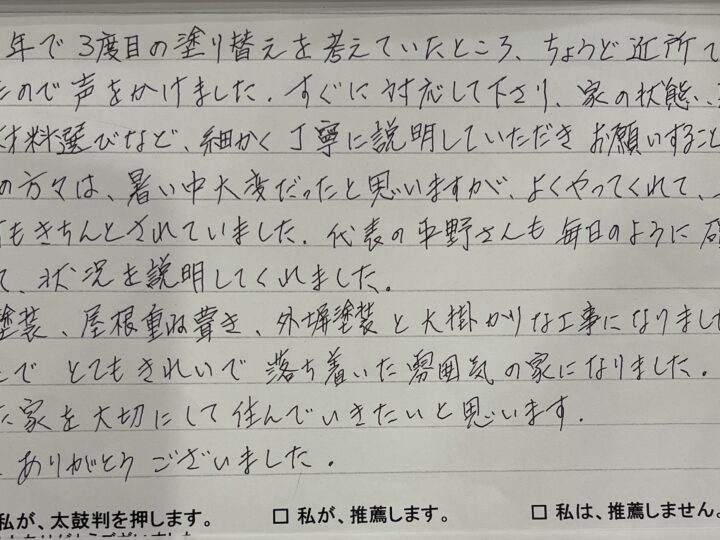 年で3度目の塗り替えを考えていたところ、ちょうど近所で
ので声をかけました。すぐに対応して下さり、家の状態、
材料選びなど、細かく丁寧に説明していただきお願いすること
の方々は、暑い中大変だったと思いますが、よくやってくれて、
もきちんとされていました。代表の平野さんも毎日のように
て、状況を説明してくれました。
塗装、屋根重ね葺き、外塀塗装と大掛かりな工事になりました
で とてもきれいで落ち着いた雰囲気の家になりました。
た家を大切にして住んでいきたいと思います.
ありがとうございました.
私が、太鼓判を押します。 □ 私が、推薦します。 □ 私は、推薦しません。